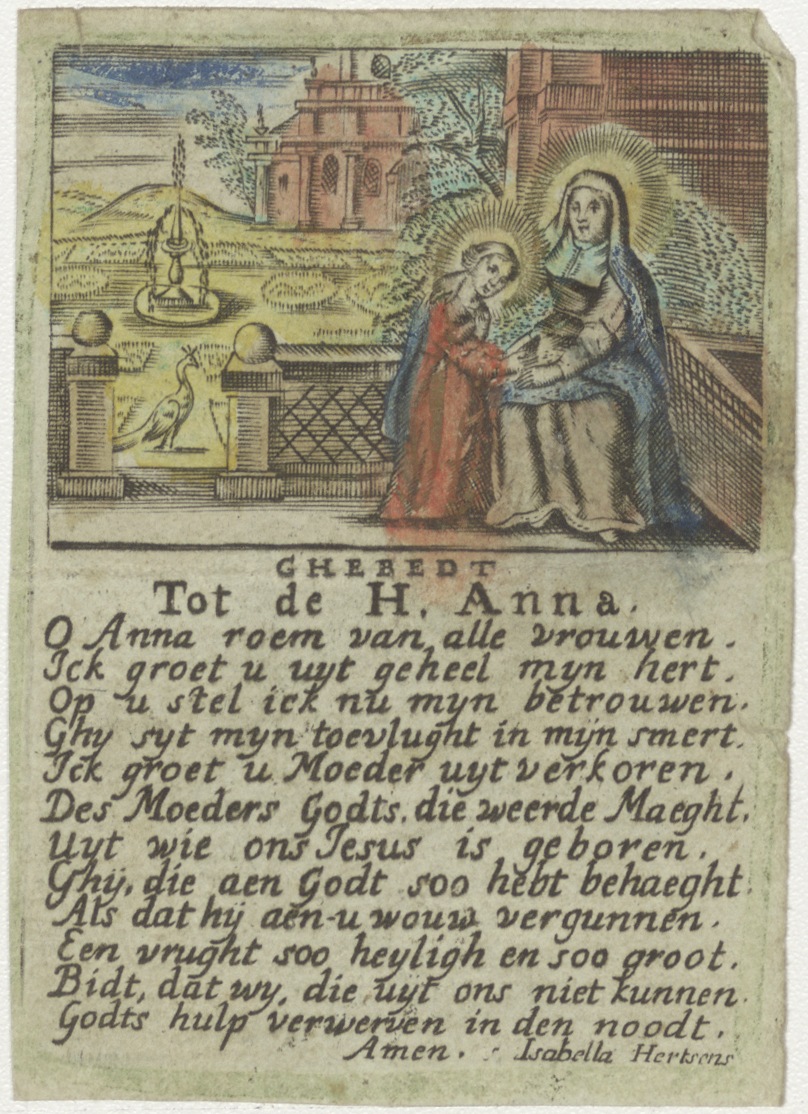 GHEBEDT
Tot de H. Anna.
O Anna roem van alle vrouwen.
Ick groet u uyt geheel myn hert.
Op u stel ick nu myn betrouwen.
Ghy syt myn toevlught in mijn smert.
Ick groet u Moeder uytverkoren.
Des Moeders Godts, die weerde Maeght,
Uyt wie ons Jesus is geboren.
Ghij, die aen Godt soo hebt behaeght.
Als dat hij aen-u wouw vergunnen.
Een vrught soo heyligh en soo groot.
Bidt, dat wy, die uyt ons niet kunnen.
Godts hulp verwerven in den noodt.
Amen. Isabella Hertsens